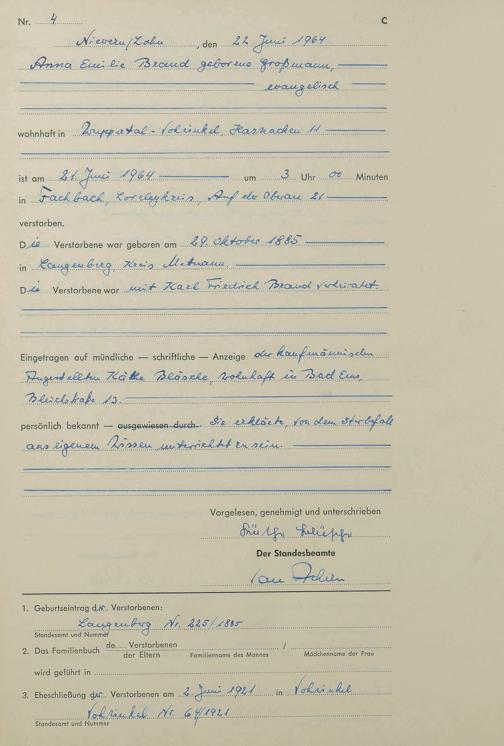 Nr. 4 C
Nievern/Lahn, den 22. Juni 1964
Anna Emilie Brand geborene Großmann,
evangelisch
wohnhaft in Wuppertal-Vohwinkel,
ist am 21. Juni 1964 um 3 Uhr 00 Minuten
in Fachbach, Loreleykreis, Auf der Oberau 21
verstorben.
Die Verstorbene war geboren am 29. Oktober 1885
in Langenberg, Kreis Mettmann.
Die Verstorbene war mit Karl Friedrich Brand verheiratet.
Eingetragen auf mündliche — schriftliche — Anzeige der kaufmännischen
Angestellten Käthe Bläsche, wohnhaft in Bad Ems,
Bleichstraße 13.
persönlich bekannt — ausgewiesen durch. Sie erklärte, von dem Sterbefall
aus eigenem Wissen unterrichtet zu sein.
Vorgelesen, genehmigt und unterschrieben
Der Standesbeamte
1. Geburtseintrag der Verstorbenen:
Langenberg Nr. 225/1885
Standesamt und Nummer
2. Das Familienbuch de Verstorbenen /
der Eltern Familienname des Mannes Mädchenname der Frau
wird geführt in
3. Eheschließung der Verstorbenen am 2. Juni 1921 in Vohwinkel
Vohwinkel Nr. 64/1921
Standesamt und Nummer